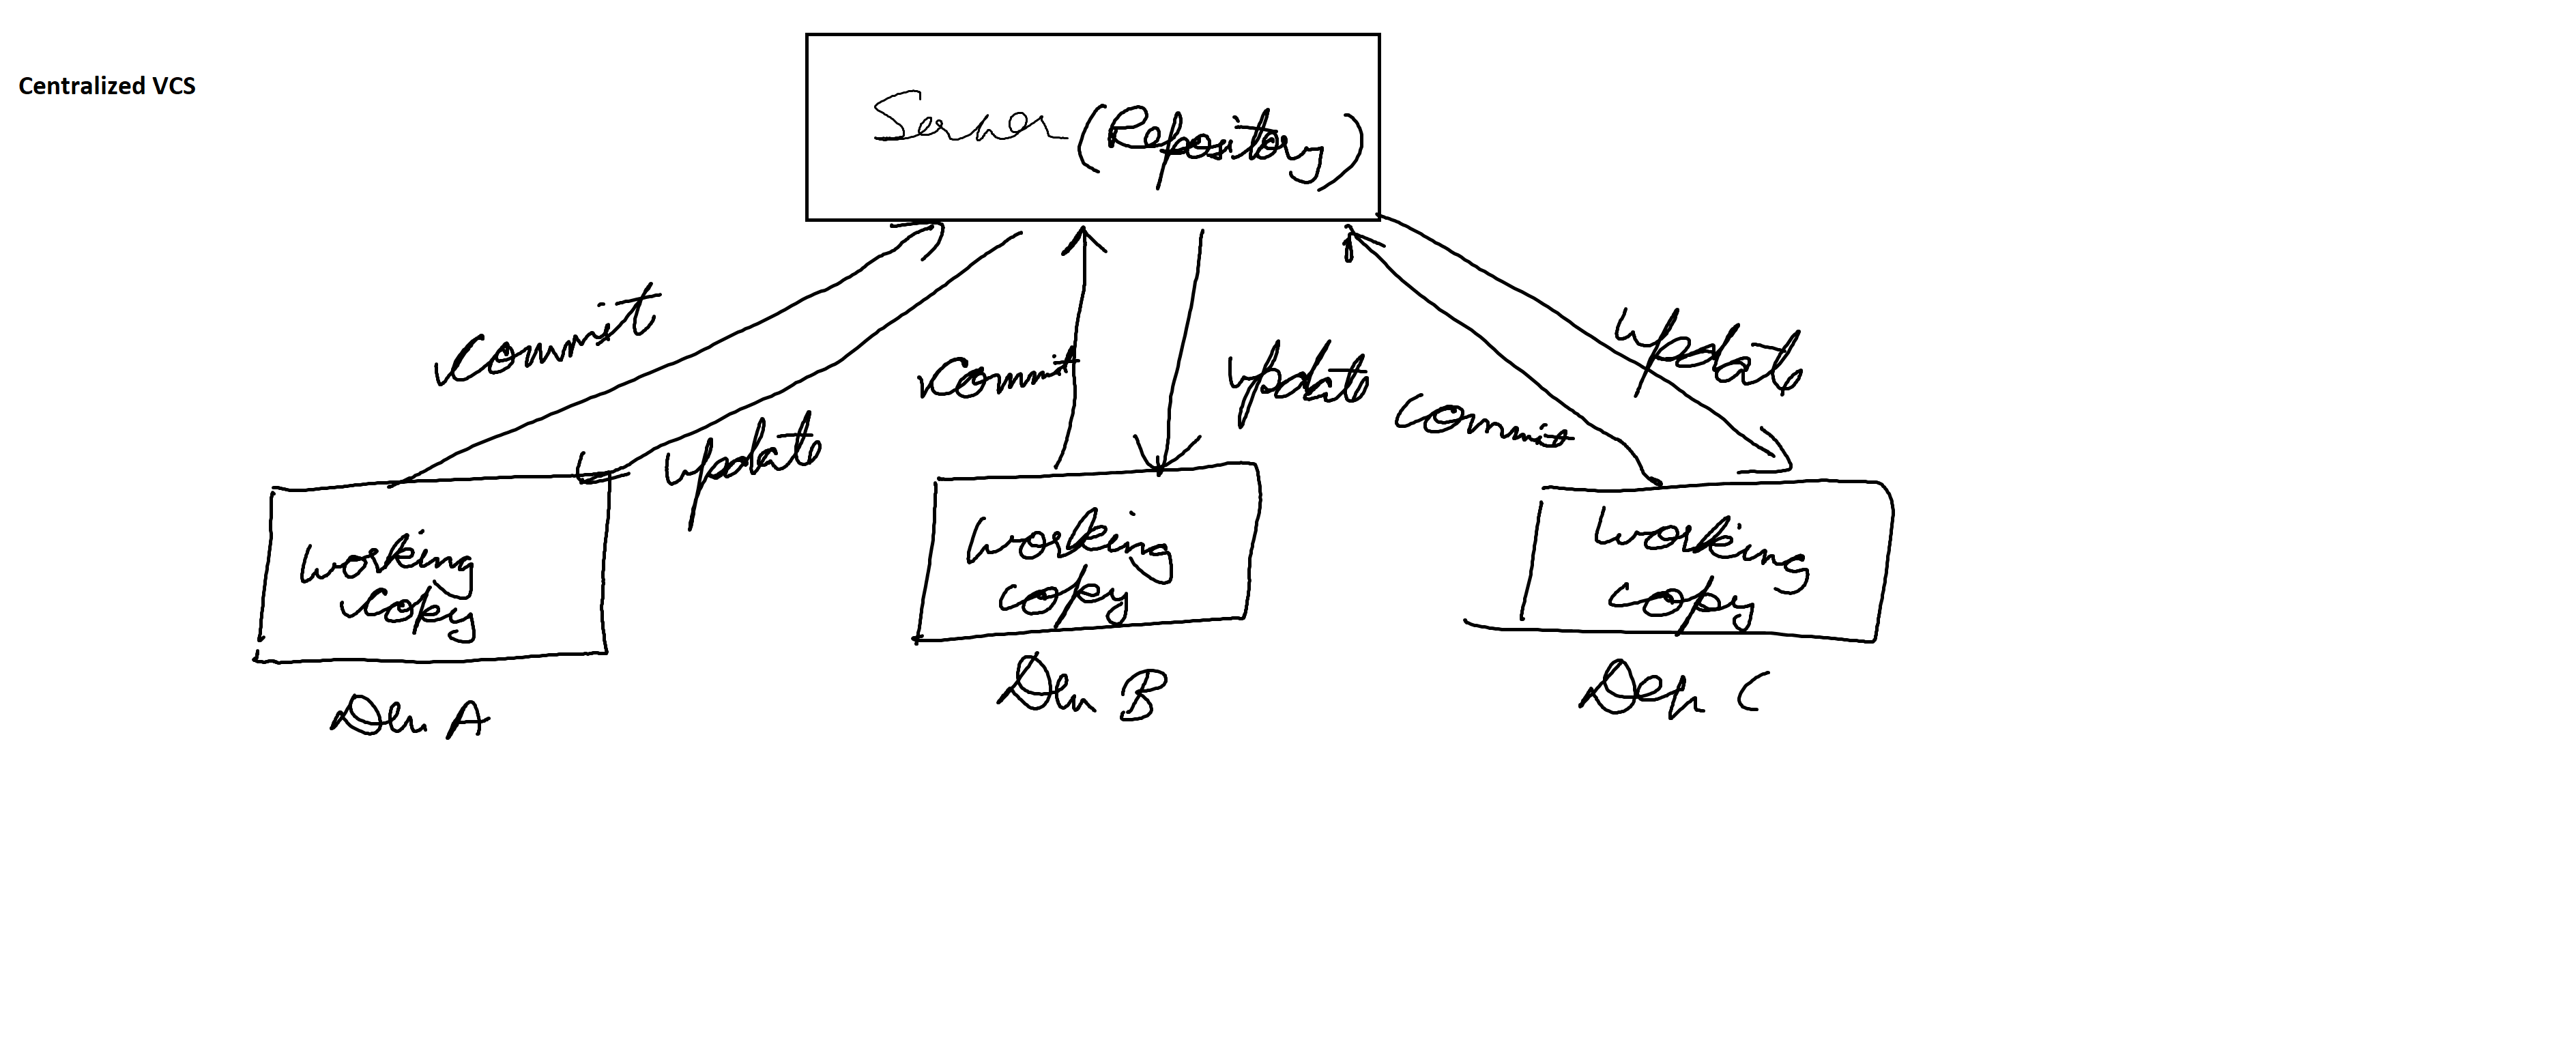 Centralized VCS
Server (Repository)
commit
update
commit
update
commit
update
working
copy
Dev A
working
copy
Dev B
working
copy
Dev C